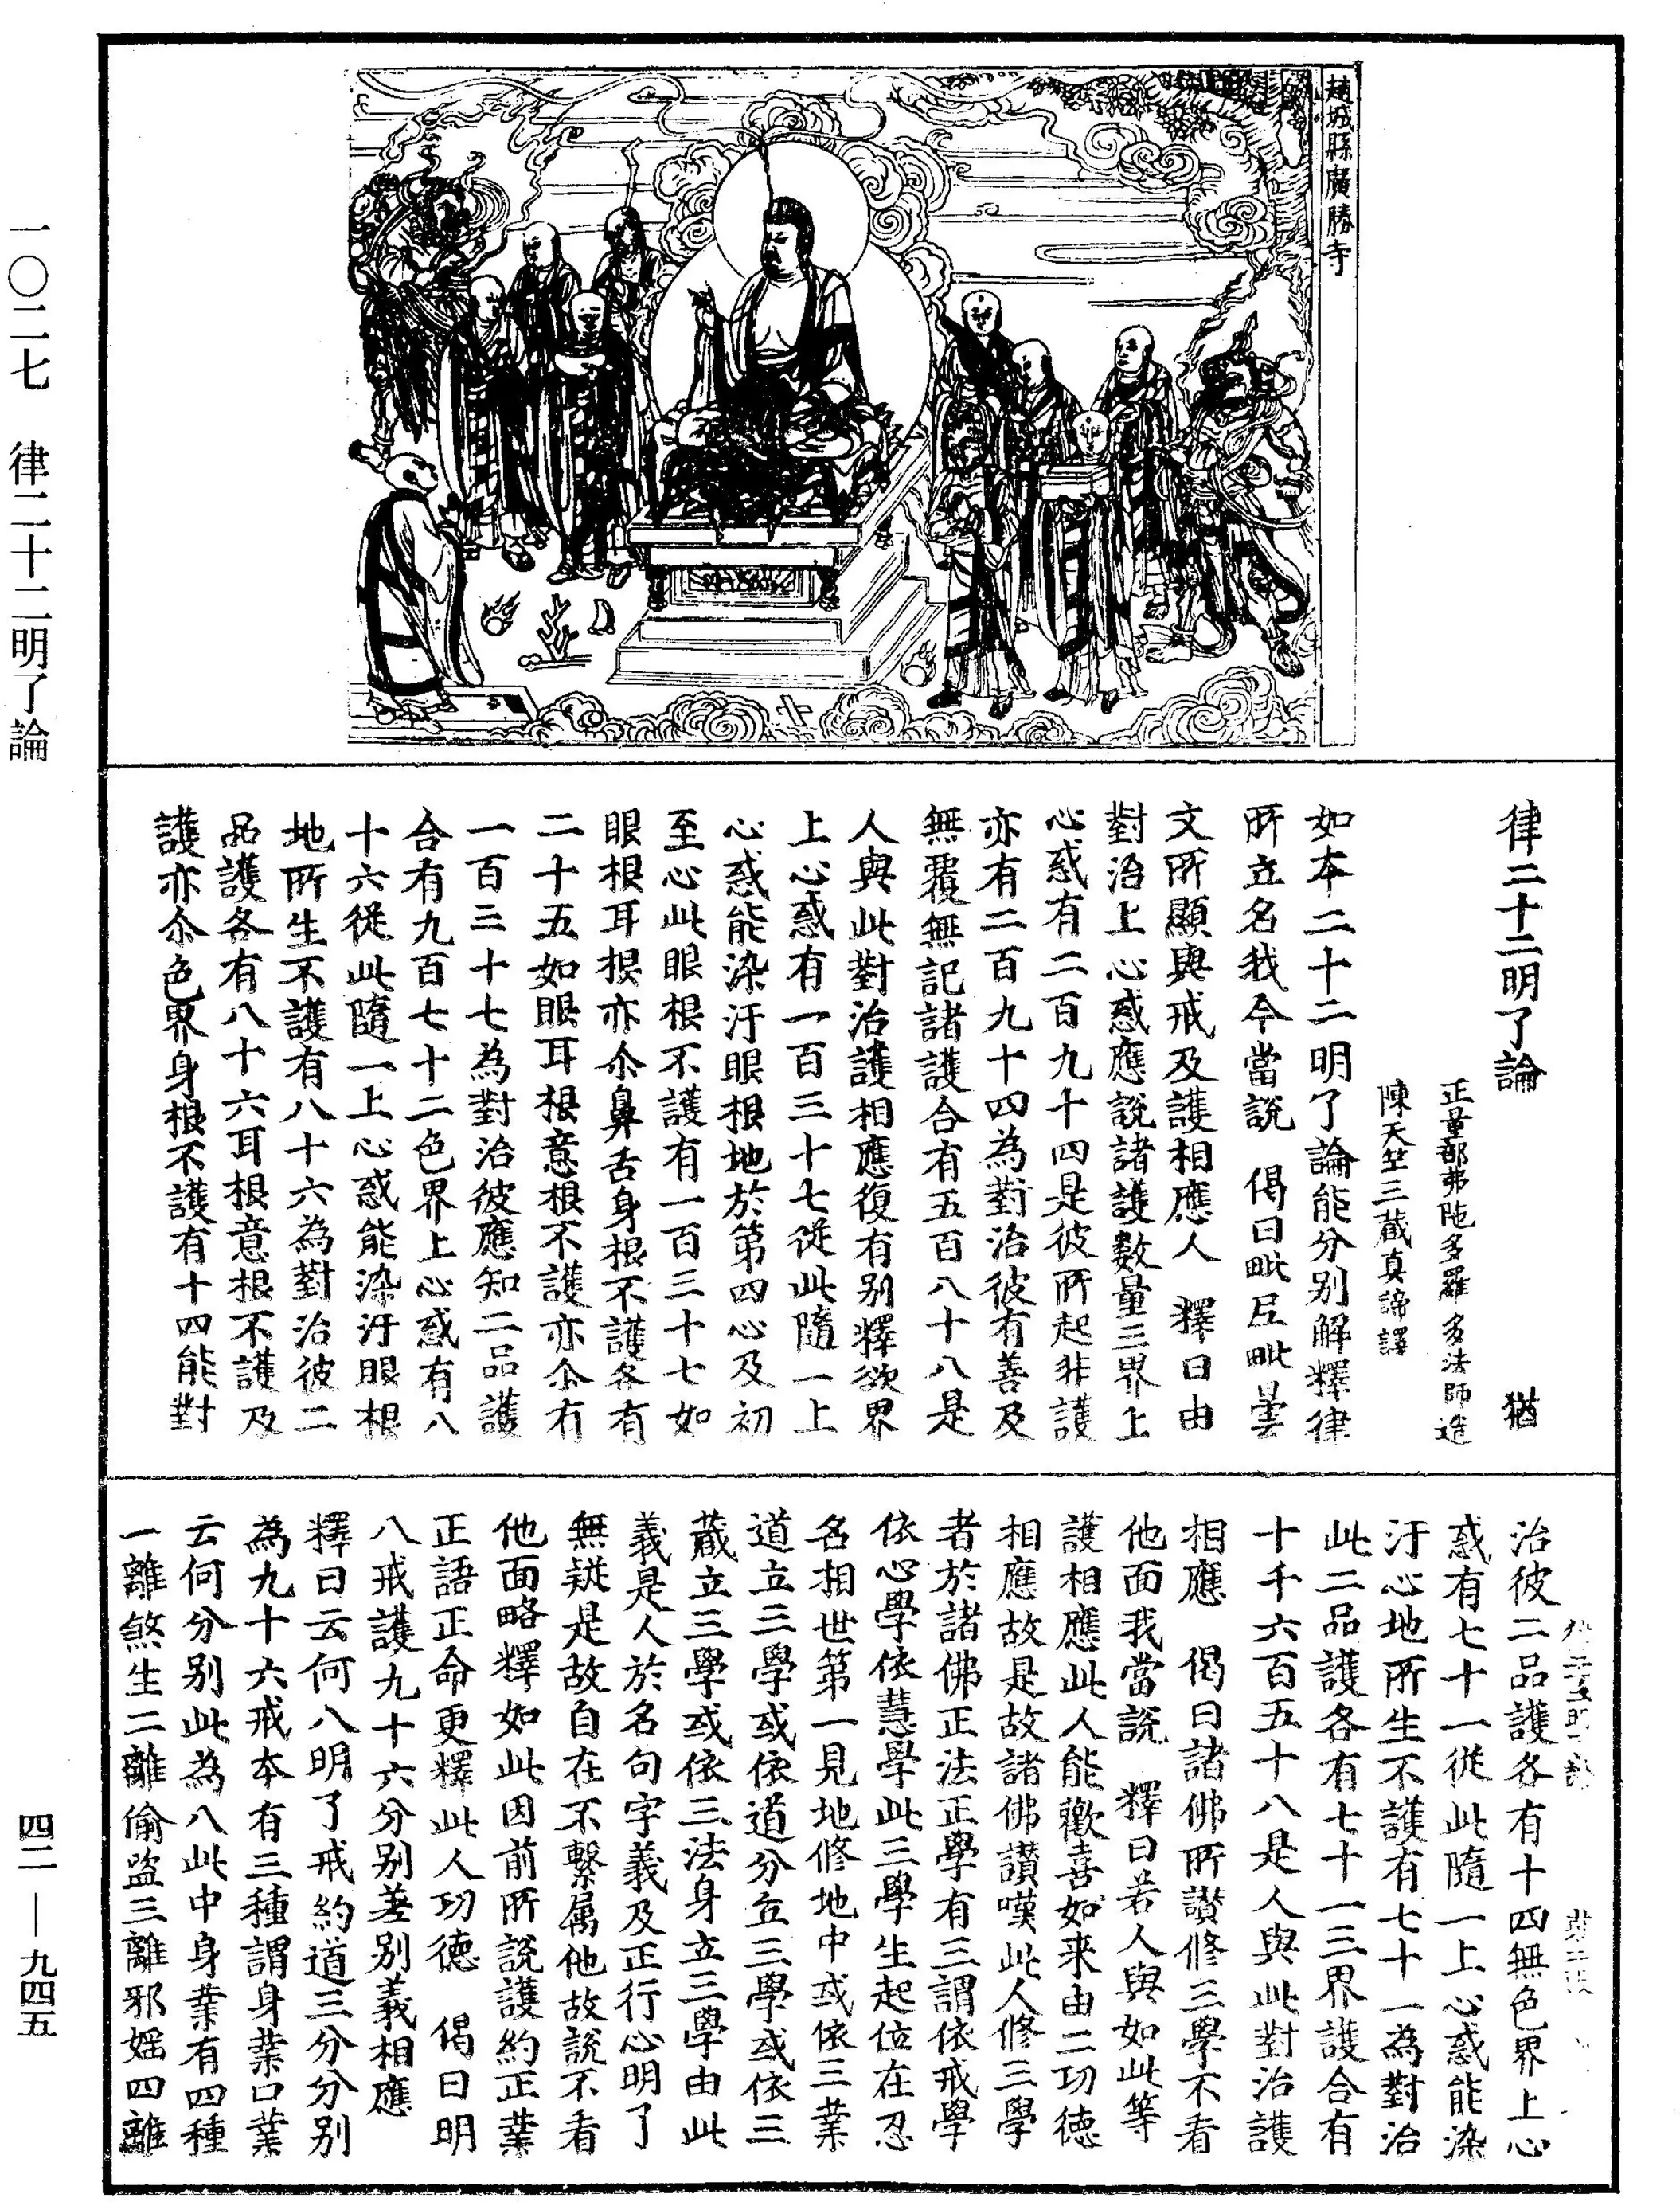 趙城縣廣勝寺
律二十二明了論 猶
正量部弗陁多羅多法師造
陳天竺三藏真諦譯
如本二十二明了論能分别解釋律
所立名我今當說 偈曰毗尼毗曇
文所顯與戒及護相應人 釋曰由
對治上心惑應說諸護數量三界上
心惑有二百九十四是彼所起非護
亦有二百九十四為對治彼有善及
無覆無記諸護合有五百八十八是
人與此對治護相應復有別釋欲界
上心惑有一百三十七從此隨一上
心惑能染汙眼根地於第四心及初
至心此眼根不護有一百三十七如
眼根耳根亦尒鼻舌身根不護各有
二十五如眼耳根意根不護亦尒有
一百三十七為對治彼應知二品護
合有九百七十二色界上心惑有八
十六從此隨一上心惑能染汙眼根
地所生不護有八十六為對治彼二
品護各有八十六耳根意根不護及
護亦尒色界身根不護有十四能對
治彼二品護各有十四無色界上心
惑有七十一從此隨一上心惑能染
汙心地所生不護有七十一為對治
此二品護各有七十一三界護合有
十千六百五十八是人與此對治護
相應 偈曰諸佛所讃修三學不看
他面我當說 釋曰若人與如此等
護相應此人能歡喜如来由二功徳
相應故是故諸佛讃嘆此人修三學
者於諸佛正法正學有三謂依戒學
依心學依慧學此三學生起位在忍
名相世第一見地修地中或依三業
道立三學或依道分立三學或依三
藏立三學或依三法身立三學由此
義是人於名句字義及正行心明了
無疑是故自在不繫属他故說不看
他面略釋如此因前所說護約正業
正語正命更釋此人功徳 偈曰明
八戒護九十六分別差別義相應
釋曰云何八明了戒約道三分分別
為九十六戒本有三種謂身業口業
云何分別此為八此中身業有四種
一離煞生二離偷盜三離邪婬四離
一〇二七 律二十二明了論
四二—九四五